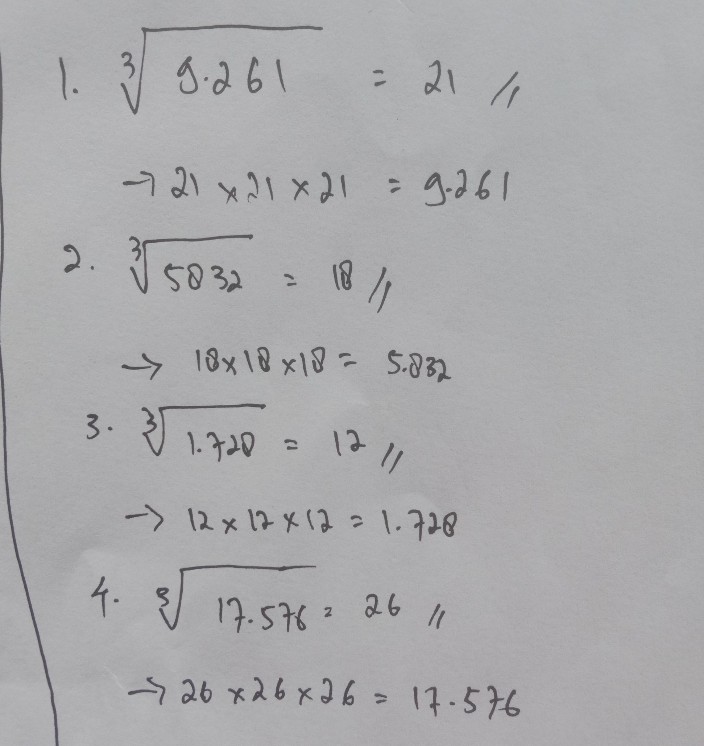 1. ³√9.261 = 21 //
→ 21 × 21 × 21 = 9.261
2. ³√5832 = 18 //
→ 18 × 18 × 18 = 5.832
3. ³√1.728 = 12 //
→ 12 × 12 × 12 = 1.728
4. ³√17.576 = 26 //
→ 26 × 26 × 26 = 17.576